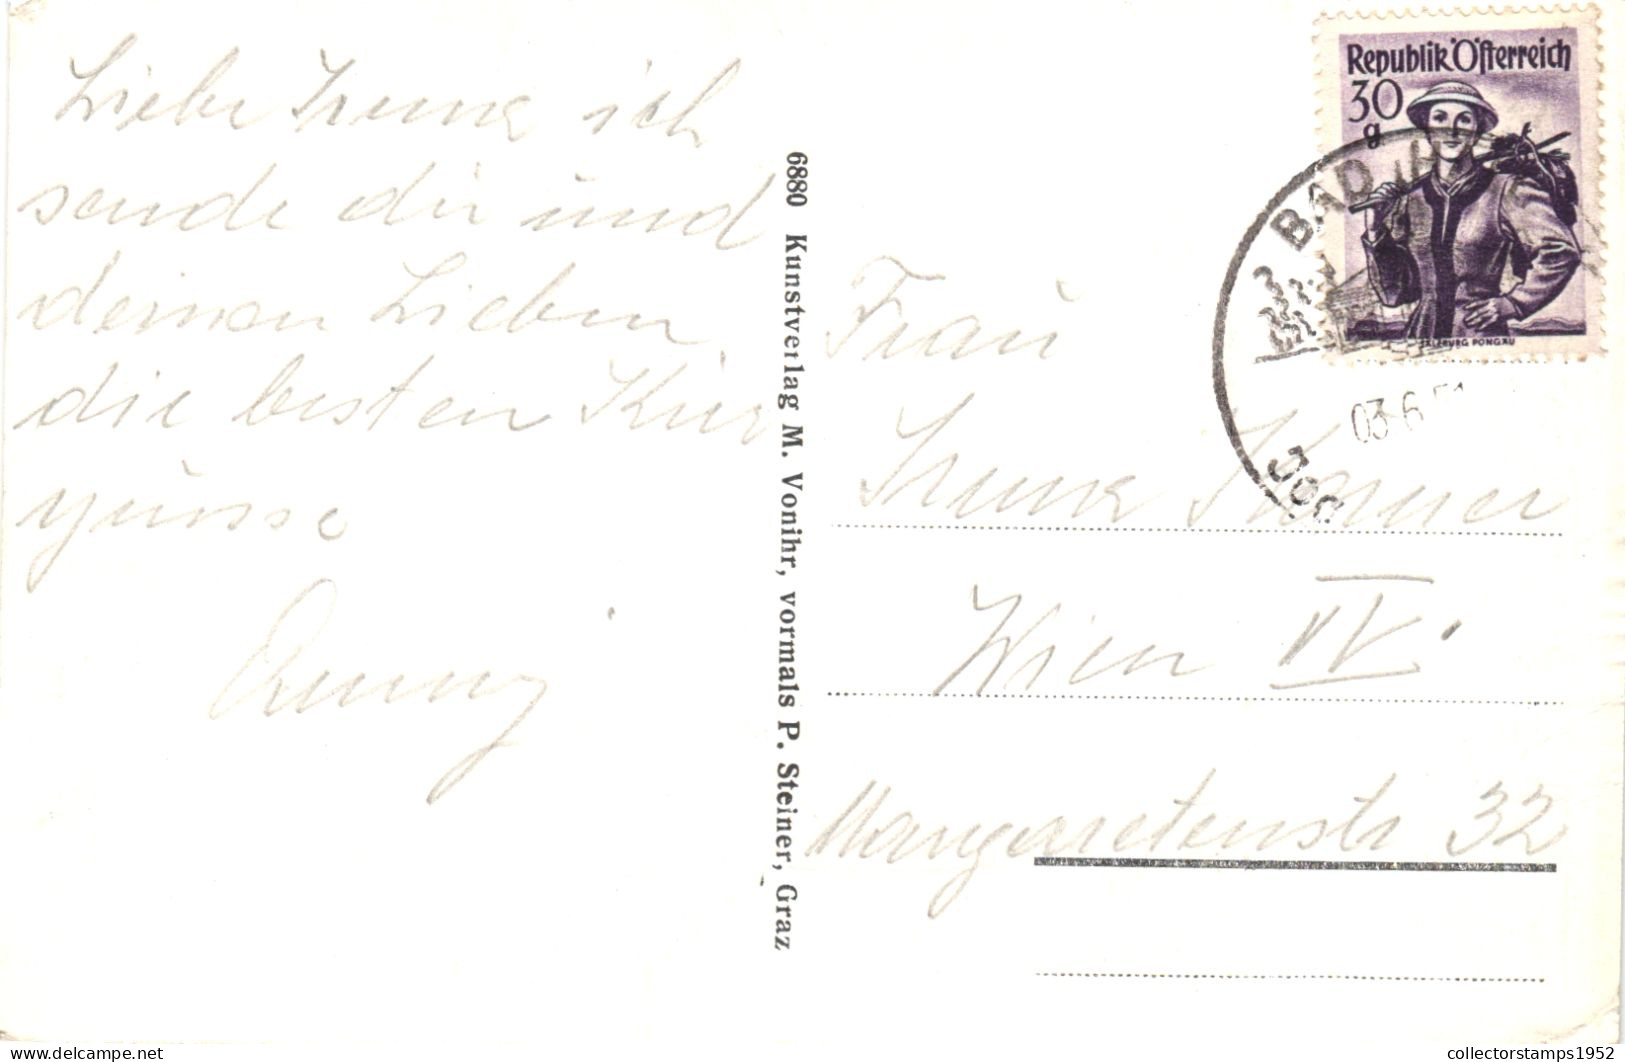 Liebe Irma ich
sende dir und
deinen Lieben
die besten Kur
grüsse
6880 Kunstverlag M. Vonihr, vormals P. Steiner, Graz
Republik Österreich
30
g
SALZBURG PONGAU
BAD H
03·6
Jod
Frau
Irma
Wien IV.
Margaretenstr 32
collectorstamps1952